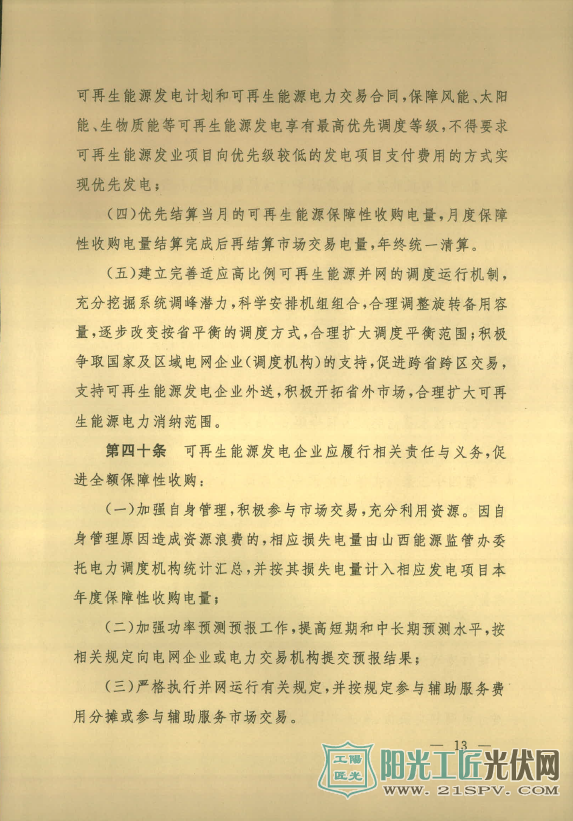 可再生能源发电计划和可再生能源电力交易合同,保障风能、太阳
能、生物质能等可再生能源发电享有最高优先调度等级,不得要求
可再生能源发业项目向优先级较低的发电项目支付费用的方式实
现优先发电;
(四)优先结算当月的可再生能源保障性收购电量,月度保障
性收购电量结算完成后再结算市场交易电量,年终统一清算。
(五)建立完善适应高比例可再生能源并网的调度运行机制,
充分挖掘系统调峰潜力,科学安排机组组合,合理调整旋转备用容
量,逐步改变按省平衡的调度方式,合理扩大调度平衡范围;积极
争取国家及区域电网企业(调度机构)的支持,促进跨省跨区交易,
支持可再生能源发电企业外送,积极开拓省外市场,合理扩大可再
生能源电力消纳范围。
第四十条 可再生能源发电企业应履行相关责任与义务,促
进全额保障性收购:
(一)加强自身管理,积极参与市场交易,充分利用资源。因自
身管理原因造成资源浪费的,相应损失电量由山西能源监管办委
托电力调度机构统计汇总,并按其损失电量计入相应发电项目本
年度保障性收购电量;
(二)加强功率预测预报工作,提高短期和中长期预测水平,按
相关规定向电网企业或电力交易机构提交预报结果;
(三)严格执行并网运行有关规定,并按规定参与辅助服务费
用分摊或参与辅助服务市场交易。
— 13 —
工陽
匠光
阳光工匠光伏网
WWW.21SPV.COM